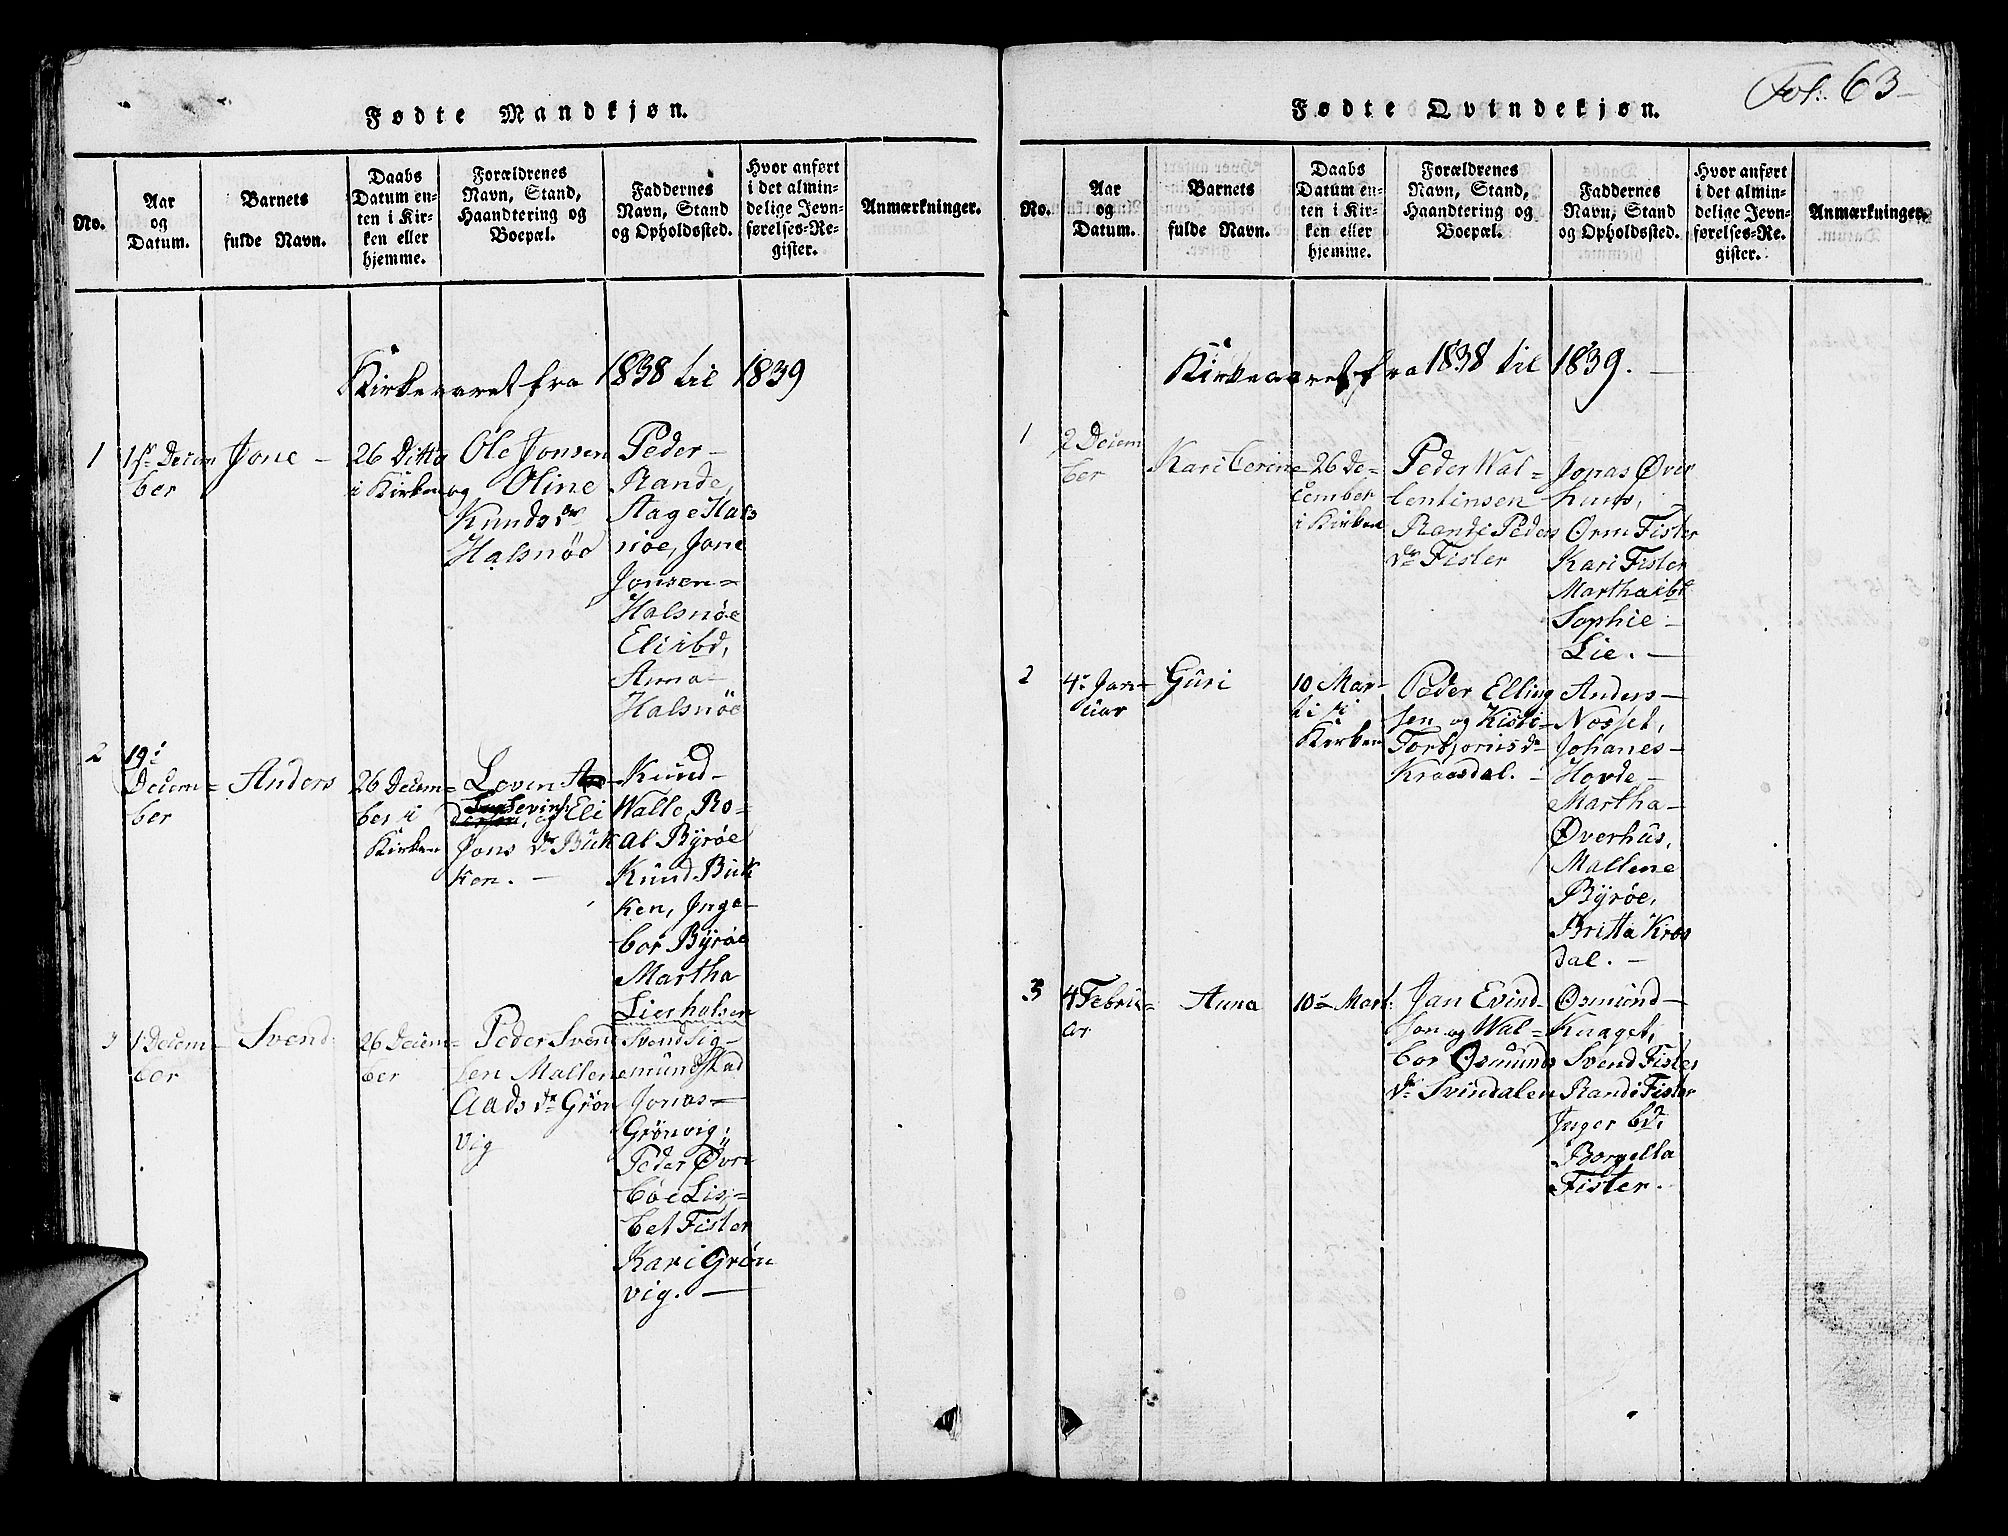 Fødte Mandkjøn.
No.
Aar
og
Datum.
Barnets
fulde Navn.
Daabs
Datum en-
ten i Kir-
ken eller
hjemme.
Forældrenes
Navn, Stand,
Haandtering og
Boepæl.
Faddernes
Navn, Stand
og Opholdssted.
Hvor anført
i det almin-
delige Jevn-
førelses-Re-
gister.
Anmærkninger.
Kirkeaaret fra 1838 til 1839
1
1ste Decem
ber
Jone –
26 Ditto
i Kirken
Ole Jonsen
og Oline
Knudsdr
Halsnöe
Peder –
Rande,
Aage Hals
nöe, Jone
Jonsen =
Halsnöe
Eli ibd,
Anna –
Halsnöe
2
19de
Decem =
ber
Anders
26 Decem =
ber i
Kirken
Loven
og Eli
Jons dr Buk
ken. –
Knud –
Walle, Ro-
al Byröe
Knud Buk
ken, Inge-
bor Byröe
Martha
Lierholsen
3
1 Decem –
ber
Svend
26 Decem =
ber
Peder Svend
sen Mallene
Aads dr Grön
vig
Svend Sig –
mundstad
Jonas –
Grönvig,
Peder Övre
böe Lis =
bet Fister
Kari Grön
vig. –
Fol: 63 –
Fødte Qvindekjøn.
No.
Aar
og
Datum.
Barnets
fulde Navn.
Daabs
Datum en-
ten i Kir-
ken eller
hjemme.
Forældrenes
Navn, Stand,
Haandtering og
Boepæl.
Faddernes
Navn, Stand
og Opholdssted.
Hvor anført
i det almin-
delige Jevn-
førelses-Re-
gister.
Anmærkninger.
Kirkeaaret fra 1838 til 1839. –
1
2 Decem
ber
Kari Cerine
26 De –
cember
i Kirken
Peder Wal =
lentinsen
Randi Peders
dr Fister
Jonas Över
huus,
Orm Fister
Kari Fister
Martha ibd
Sophie –
Lie. –
2
4de Jan –
uar
Guri
10 Mar –
ti i
Kirken
Peder Elling
sen og Kisti =
Torbjörns dr
Kraasdal. –
Anders –
Nosset,
Johanes –
Hovde –
Martha –
Överhus,
Mallene
Byröe,
Britta Kros
dal. –
3
4 Febru –
ar
Anna
10de Mart:
Jan Evind –
sen og Wal =
bor Osmunds
dr Svindalen
Osmund –
Knaget,
Svend Fister
Randi Fister
Inger ibd,
Borgella
Fister. –